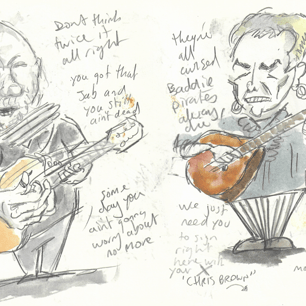 Don't think
twice it
all right
you got that
Jab and
you still
aint dead
some
day you
aint gonna
worry about
no more
they're
all
cursed
Baddie
pirates
always
die
We just
need you
to sign
right
here with
your X
"CHRIS BROWN"